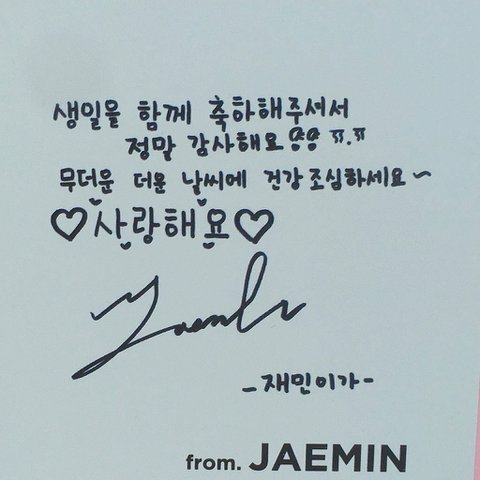 생일을 함께 축하해주셔서
정말 감사해요 ㅠ.ㅠ
무더운 더운 날씨에 건강 조심하세요~
♡사랑해요♡
Jaemin
-재민이가-
from. JAEMIN